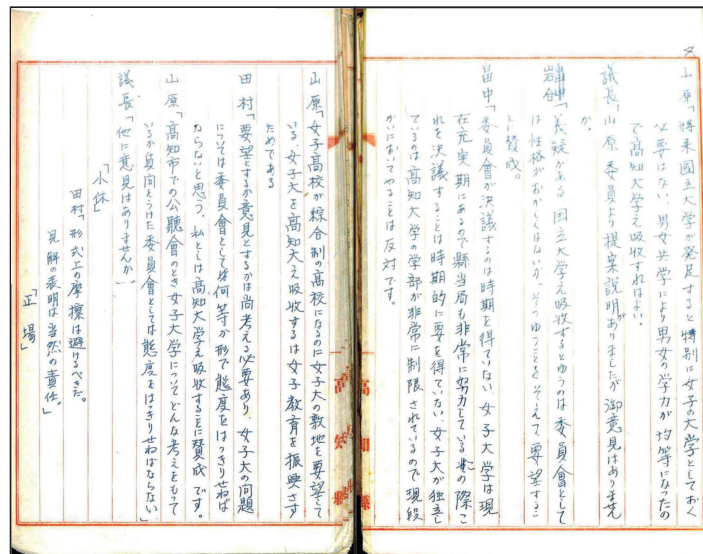 山原「将来国立大学が発足すると特別に女子の大学としておく
必要はない、男女共学により男女の学力が均等になったの
で高知大学え吸收すればよい。
議長「山原委員より提案説明がありましたが御意見はありません
か。
岩合「義疑がある 国立大学え吸收するとゆうのは委員會として
は性格がおかしくはないか。そうゆうことをそえて要望するこ
と賛成。
畠中「委員會が決議するのは時期を得ていない 女子大学は現
在充実期にあるので縣当局も非常に努力している 此の際こ
れを決議することは時期的に要を得ていない、女子大が独立し
ているのは高知大学の学部が非常に制限されているので現段
かいにおいてやることは反対です。
高知縣
山原「女子高校が綜合制の高校になるのに女子大の敷地を要望して
いる、女子大を高知大え吸收するは女子教育を振興さす
ためである
田村「要望とするか意見とするかは尚考える必要あり、女子大の問題
については委員會として何等か形で態度をはっきりせねば
ならないと思う、私としは高知大学え吸收することに賛成です。
山原「高知市での公聽會のとき女子大学についてどんな考えをもって
いるか質問をうけた委員會としては態度をはっきりせねばならない」
議長「他に意見はありませんか」
「小休」
田村「形式上の摩擦は避けるべきだ。
見解の表明は当然の責任。
「正場」
高知縣